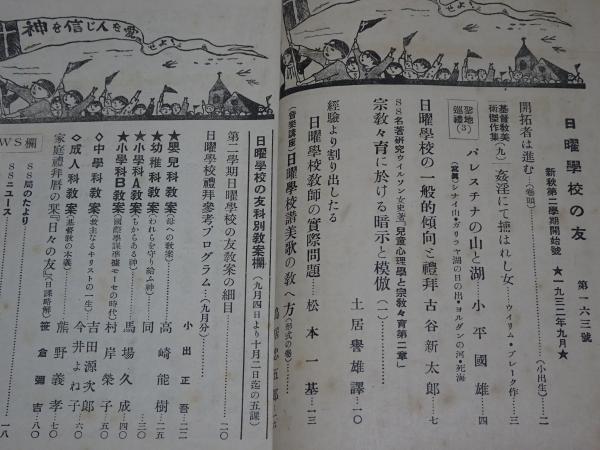 神を信じ人を愛せよ
日曜學校の友
第一六三號
新秋第二學期開始號 ★一九三二年九月★
開拓者は進む…(卷頭)…(小出生)…二
基督敎美術傑作集(九) 姦淫にて擄はれし女…ウイリム・ブレーク作…三
聖地巡禮(3) パレスチナの山と湖 小平國雄…四
(寫眞)シナイ山・ガリラヤ湖の日の出・ヨルダンの河・死海
日曜學校の一般的傾向と禮拜 古谷新太郎…七
SS名著硏究 ウイルソン女史著「兒童心理學と宗敎々育第二章」
宗敎々育に於ける暗示と模倣(一) 土居譽雄譯…一〇
經驗より割り出したる
日曜學校敎師の實際問題 松本一基…一三
(音樂講座) 日曜學校讃美歌の敎へ方(形式の卷)
日曜學校の友科別敎案欄(九月四日より十月二日迄の五課)
日曜學校禮拜參考プログラム…(九月分)…二〇
第二學期日曜學校の友敎案の細目
★嬰兒科敎案 小出正吾…二二
★幼稚科敎案(われらを守り給ふ神) 高崎能樹…二五
★小學科A敎案(ちからある神) 同…三〇
★小學科B敎案(國際學課準據モーセの時代) 馬場久成…四〇
◇中學科敎案(救主なるキリストの一生) 村岸榮子…五〇
◇成人科敎案(基督敎の本義) 吉田源次郎
今井よね子…六〇
家庭禮拜曆の栞『日々の友』(日課略解) 熊野義孝…七〇
笹倉彌吉…八〇
WS欄
SS局のたより
SSニュース…一八